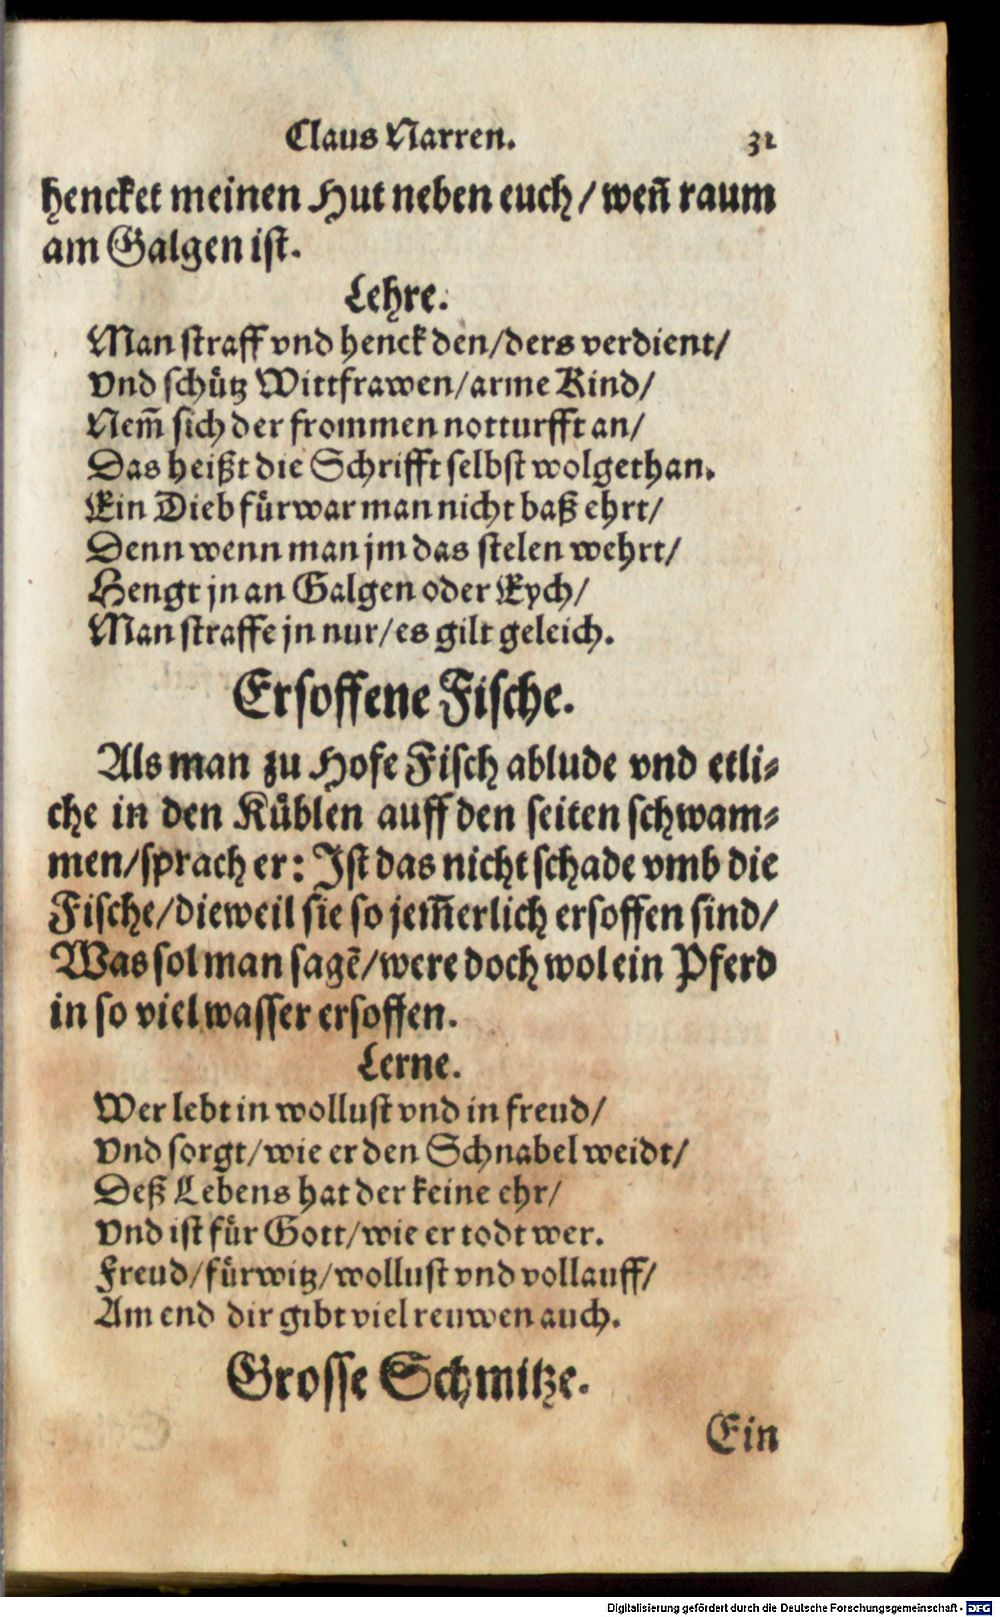 Claus Narren. 31
hencket meinen Hut neben euch/ weñ raum
am Galgen ist.
Lehre.
Man straff vnd henck den/ ders verdient/
Vnd schütz Wittfrawen/ arme Kind/
Nem̃ sich der frommen notturfft an/
Das heißt die Schrifft selbst wolgethan.
Ein Dieb fürwar man nicht baß ehrt/
Denn wenn man jm das stelen wehrt/
Hengt jn an Galgen oder Eych/
Man straffe jn nur/ es gilt geleich.
Ersoffene Fische.
Als man zu Hofe Fisch ablude vnd etli-
che in den Küblen auff den seiten schwam-
men/ sprach er: Ist das nicht schade vmb die
Fische/ dieweil sie so jem̃erlich ersoffen sind/
Was sol man sagẽ/ were doch wol ein Pferd
in so viel wasser ersoffen.
Lerne.
Wer lebt in wollust vnd in freud/
Vnd sorgt/ wie er den Schnabel weidt/
Deß Lebens hat der keine ehr/
Vnd ist für Gott/ wie er todt wer.
Freud/ fürwitz/ wollust vnd vollauff/
Am end dir gibt viel reuwen auch.
Grosse Schmitze.
Ein
Digitalisierung gefördert durch die Deutsche Forschungsgemeinschaft - DFG